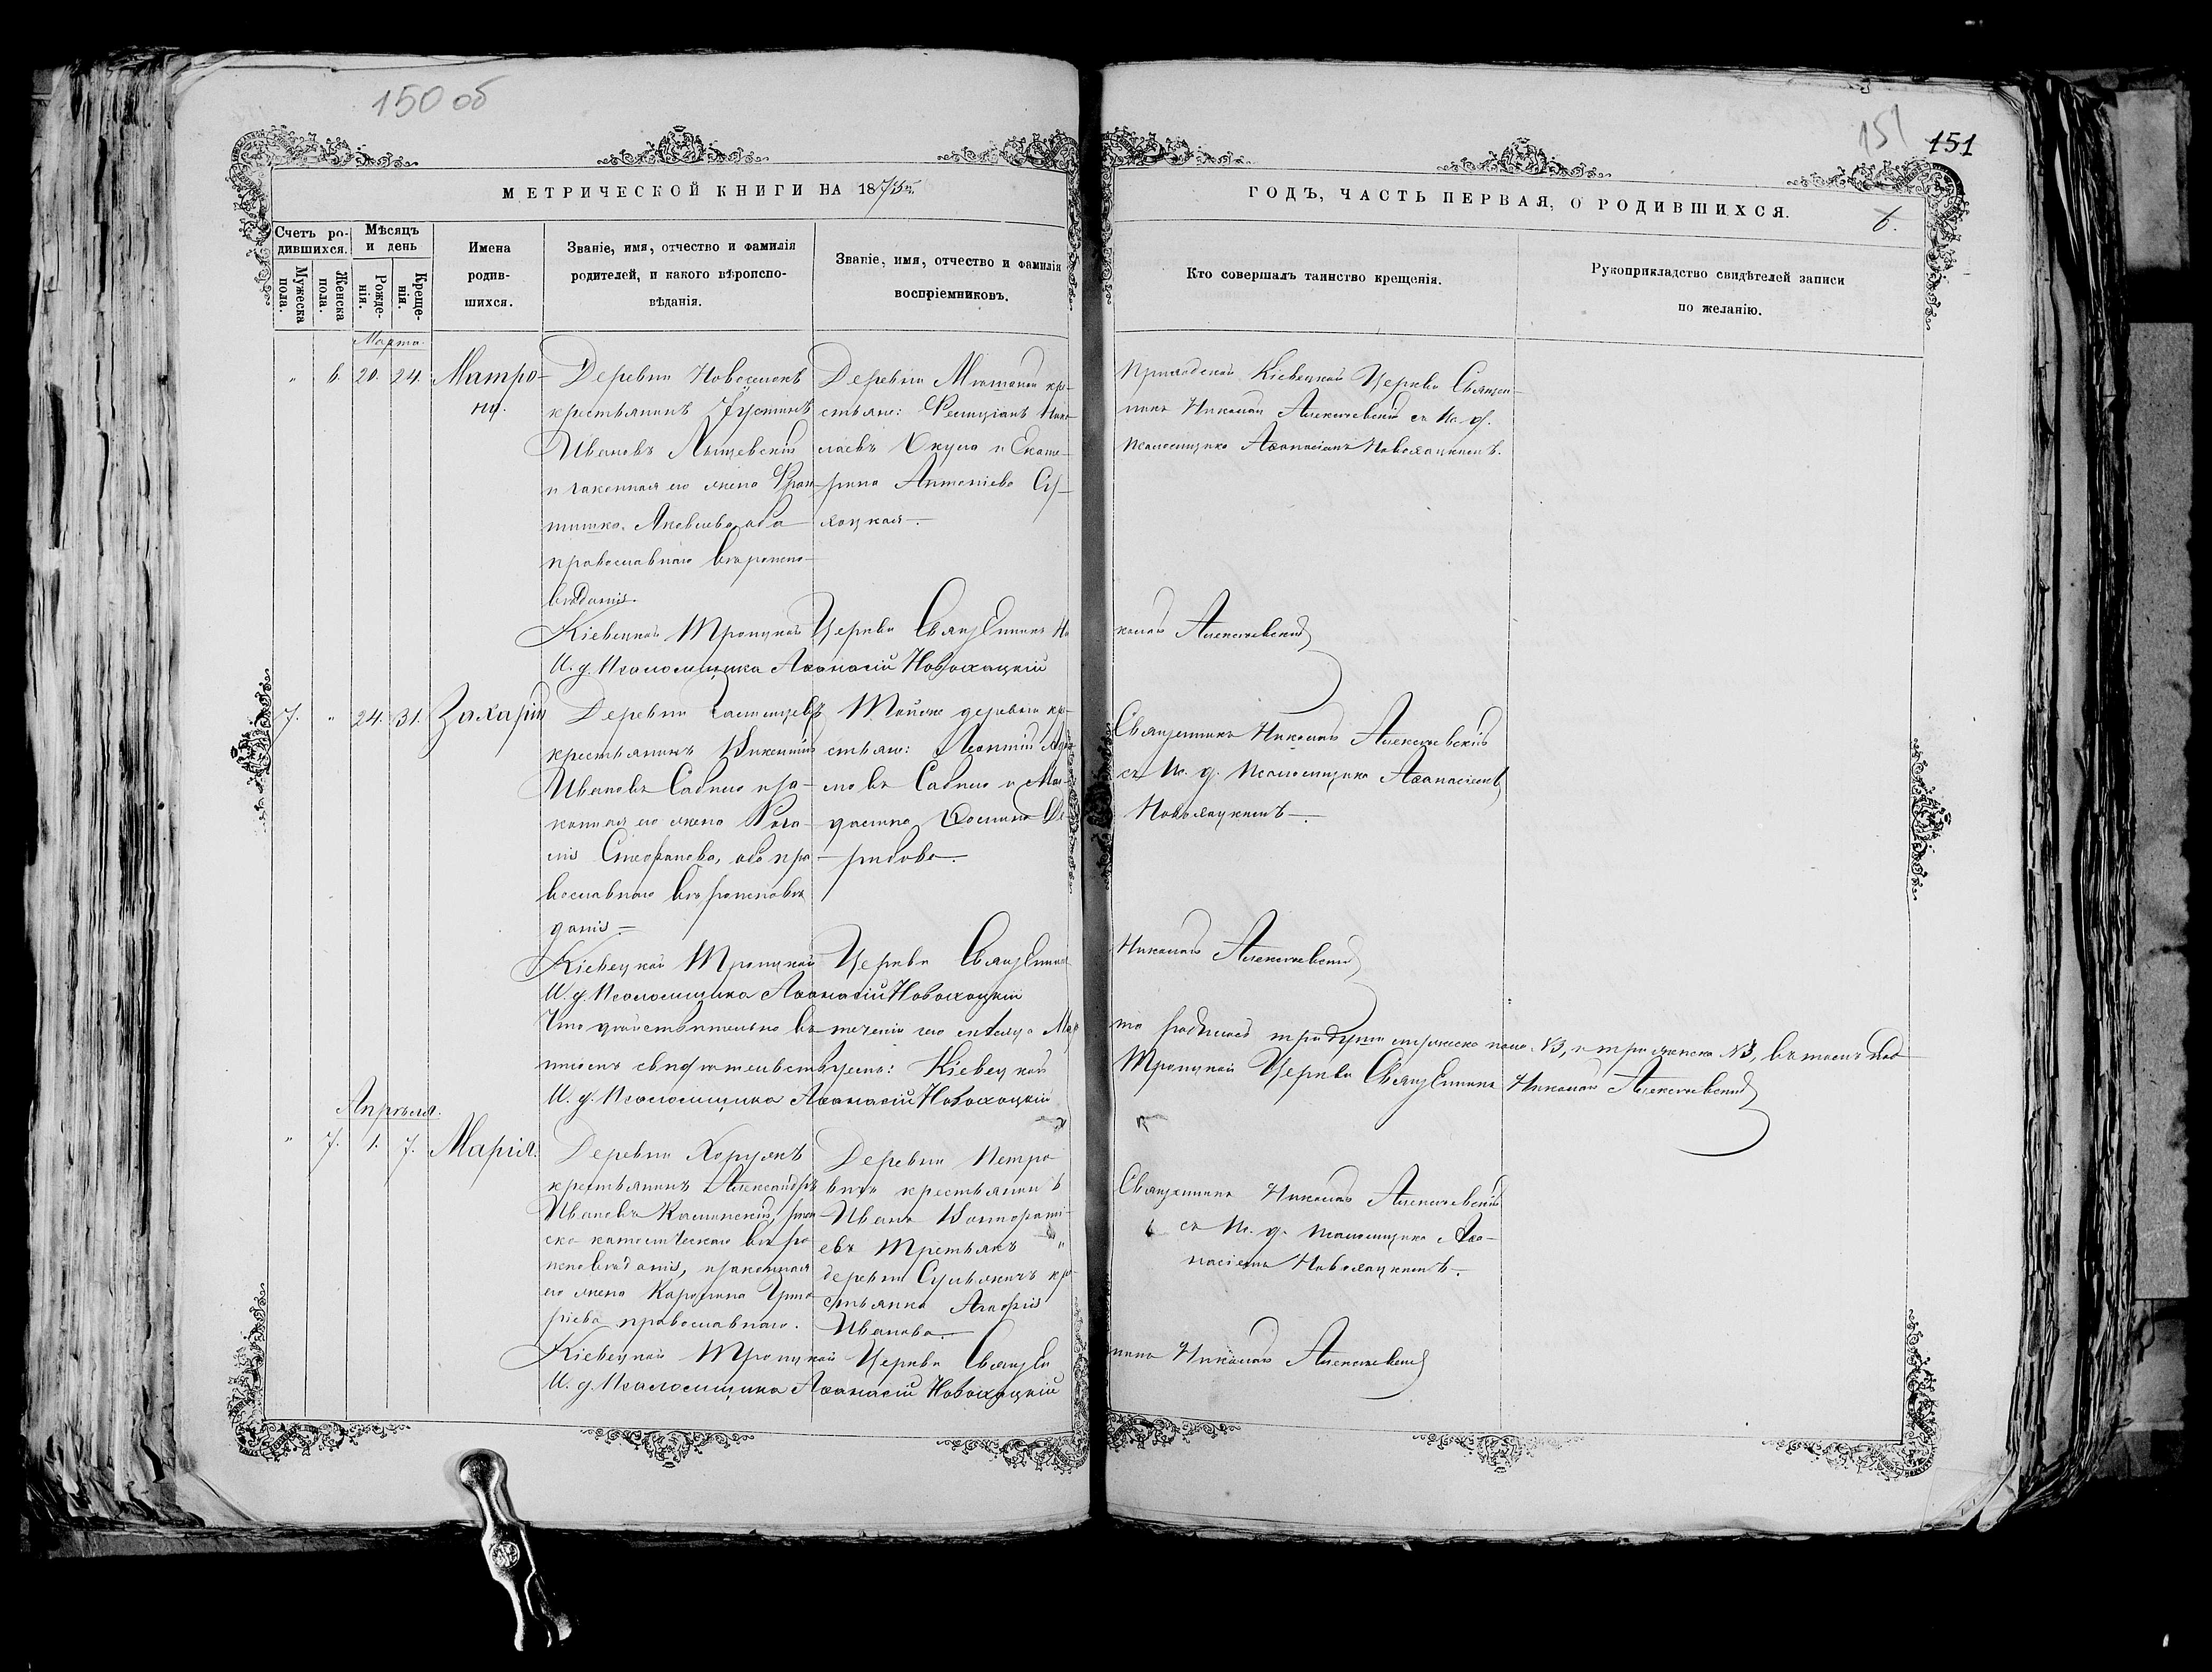 150 об
151
151
МЕТРИЧЕСКОЙ КНИГИ НА 187
ГОДЪ, ЧАСТЬ ПЕРВАЯ, О РОДИВШИХСЯ.
6.
Счетъ ро-
дившихся.
Мужеска
пола.
Женска
пола.
Мѣсяцъ
и день
Рожде-
нія.
Креще-
нія.
Имена
родив-
шихся.
Званіе, имя, отчество и фамилія
родителей, и какого вѣроиспо-
вѣданія.
Званіе, имя, отчество и фамилія
воспріемниковъ.
Кто совершалъ таинство крещенія.
Рукоприкладство свидѣтелей записи
по желанію.
Марта.
" 6. 20. 24. Матро-
на.
Деревни Новоселокъ
крестьянинъ Іустинъ
Ивановъ
и законная его жена Фран
Яковлева, оба
православнаго вѣроиспо-
вѣданія.
Деревни кре-
стьяне: Нико-
лаевъ Окула и Екате-
рина Антоніева
Приходской Кіевецкой Церкви Священ-
никъ Николай Алексѣевскій съ И. д.
псаломщика Аѳанасіемъ Новохацкимъ.
Кіевецкой Троицкой Церкви Священникъ Ни
колай Алексѣевскій
И. д. Псаломщика Аѳанасій Новохацкій
7. " 24. 31. Захарій
Деревни
крестьянинъ Викентій
Ивановъ и за-
конная его жена Роза-
лія Стефанова, оба пра
вославнаго вѣроисповѣ
данія.—
Тойже деревни кре-
стьяне: Леонтій
мовъ и Ма-
Священникъ Николай Алексѣевскій
съ И. д. псаломщика Аѳанасіемъ
Новохацкимъ—.
Кіевецкой Троицкой Церкви Священникъ
Николай Алексѣевскій
И. д. Псаломщика Аѳанасій Новохацкій
Что дѣйствительно въ теченіи сего мѣсяца Мар
та родилось три души мужеска пола №3, и три женска №3, въ томъ под
писомъ свидѣтельствуемъ: Кіевецкой
Троицкой Церкви Священникъ Николай Алексѣевскій
И. д. Псаломщика Аѳанасій Новохацкій
Апрѣля.
" 7. 1. 7. Марія.
Деревни
крестьянинъ Александръ
Ивановъ Калинскій, рим
ско католическаго вѣро
исповѣданія, и законная
его жена Каролина Григо
ріева православнаго.
Деревни Петро
вичъ крестьянинъ
Иванъ
евъ Третьякъ и
деревни кре
стьянка Агафія
Иванова.—
Священникъ Николай Алексѣевскій
съ И. д. псаломщика Аѳа-
насіемъ Новохацкимъ—.
Кіевецкой Троицкой Церкви Священ
никъ Николай Алексѣевскій
И. д. Псаломщика Аѳанасій Новохацкій